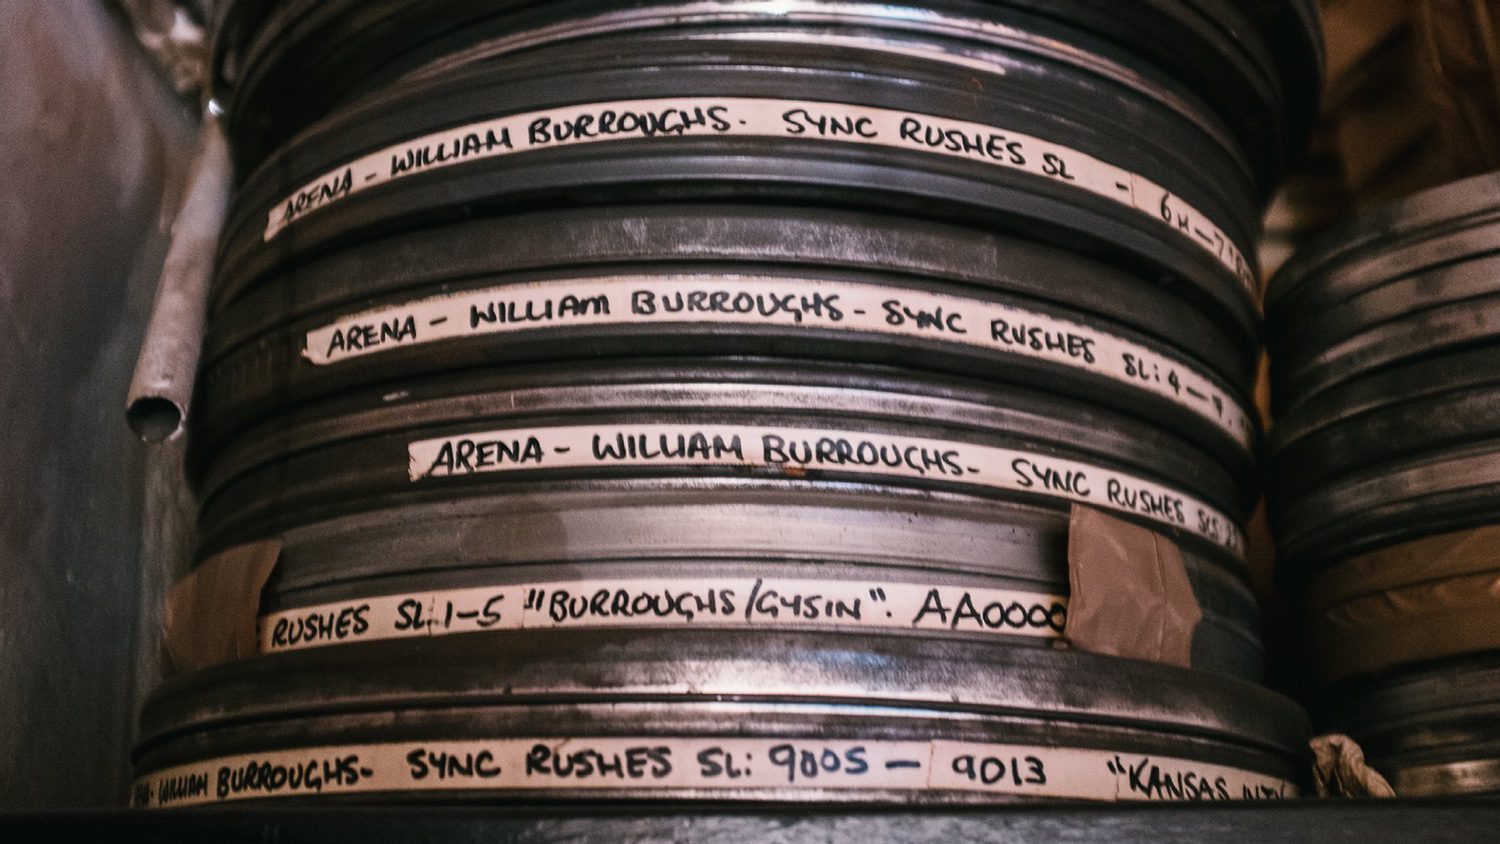 ARENA - WILLIAM BURROUGHS. SYNC RUSHES SL - 6
ARENA - WILLIAM BURROUGHS - SYNC RUSHES SL: 4 —
ARENA - WILLIAM BURROUGHS - SYNC RUSHES
RUSHES SL: 1-5 "BURROUGHS/GYSIN". AA0000
WILLIAM BURROUGHS - SYNC RUSHES SL: 9005 - 9013 "KANSAS